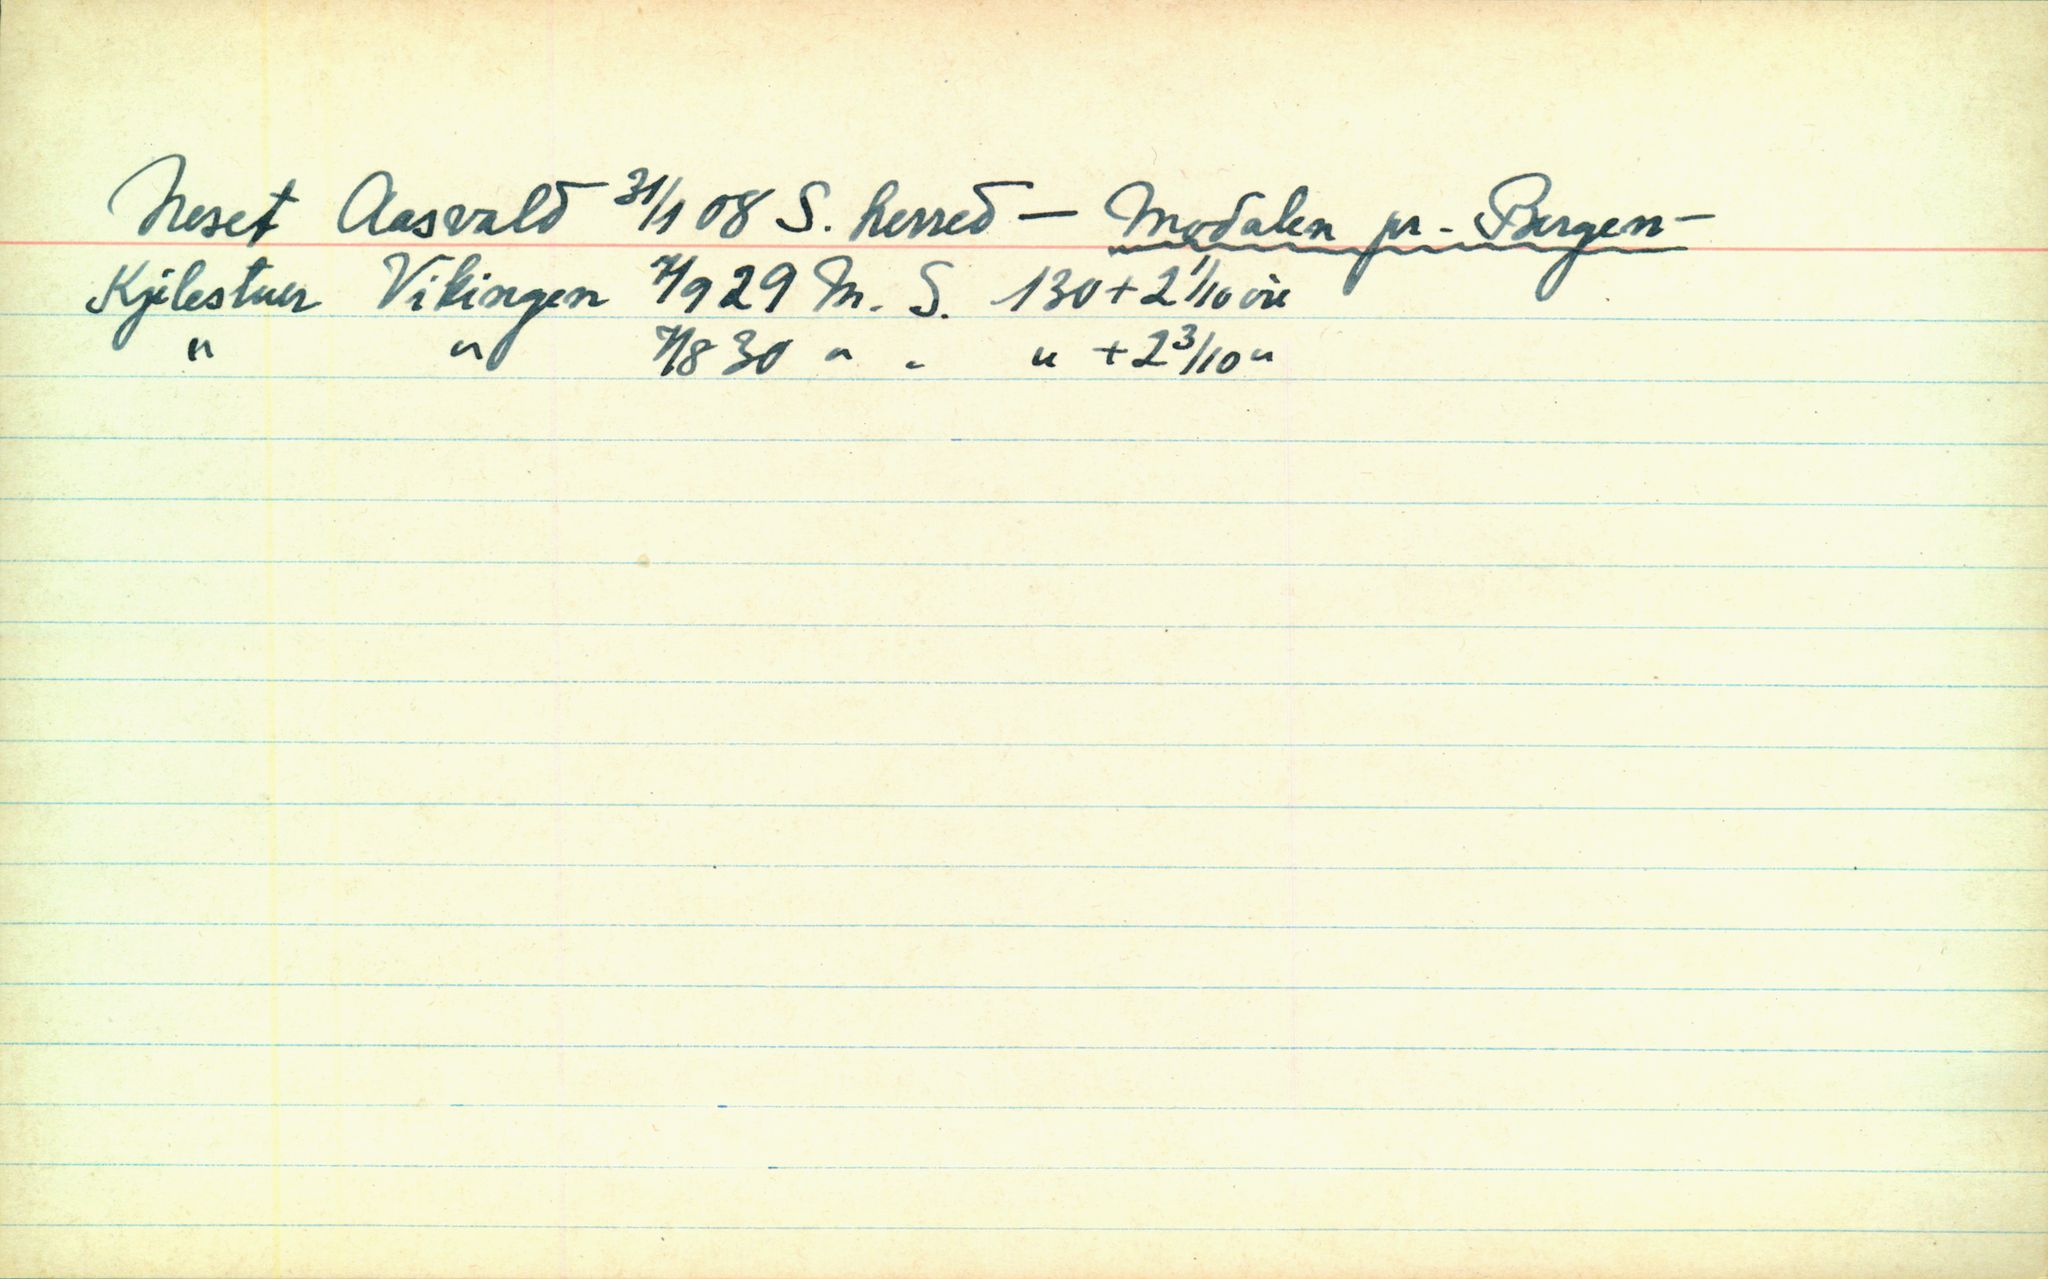 Neset Aasvald 31/1 08 S. herred — Modalen pr. Bergen —
Kjelestuer Vikingen 7/9 29 M. S. 130 + 2 1/10 øre
" " 7/8 30 " " " + 2 3/10 "